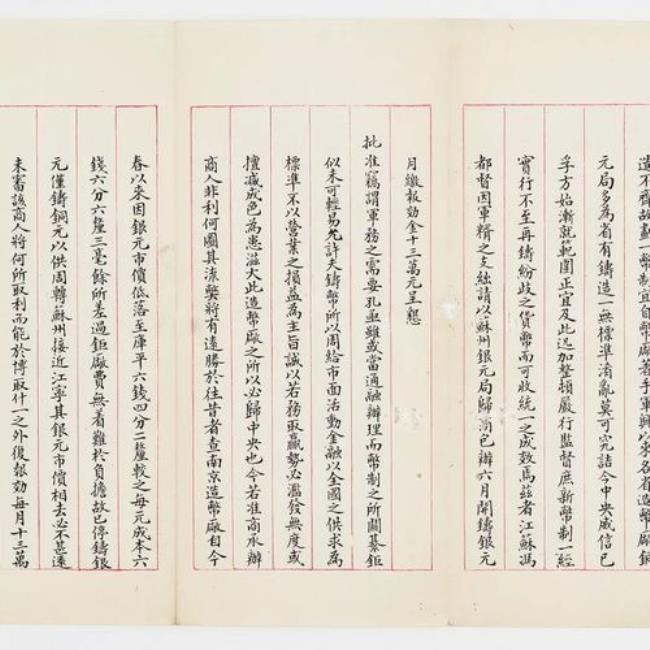 造不齊故劃一幣制宜自幣廠著手軍興以來各省造幣廠銀
元局多為省有鑄造一無標準淆亂莫可究詰今中央威信已
孚方始漸就範圍正宜及此迅加整頓嚴行監督庶新幣制一經
實行不至再鑄紛歧之貨幣而可收統一之成效焉茲者江蘇馮
都督因軍糈之支絀請以蘇州銀元局歸商包辦六月開鑄銀元
月繳報効金十三萬元呈懇
批准竊謂軍務之需要孔亟雖或當通融辦理而幣制之所關綦鉅
似未可輕易允許夫鑄幣所以周給市面活動金融以全國之供求為
標準不以營業之損益為主旨誠以若務取贏勢必濫發無度或
擅減成色為患滋大此造幣廠之所以必歸中央也今若准商承辦
商人非利何圖其流獘將有遠勝於往昔者查南京造幣廠自今
春以來因銀元市價低落至庫平六錢四分二釐較之每元成本六
錢六分六釐三毫餘所差過鉅廠費無着難於負擔故已停鑄銀
元僅鑄銅元以供周轉蘇州接近江寧其銀元市價相去必不甚遠
未審該商人將何所取利而能於博取什一之外復報効每月十三萬